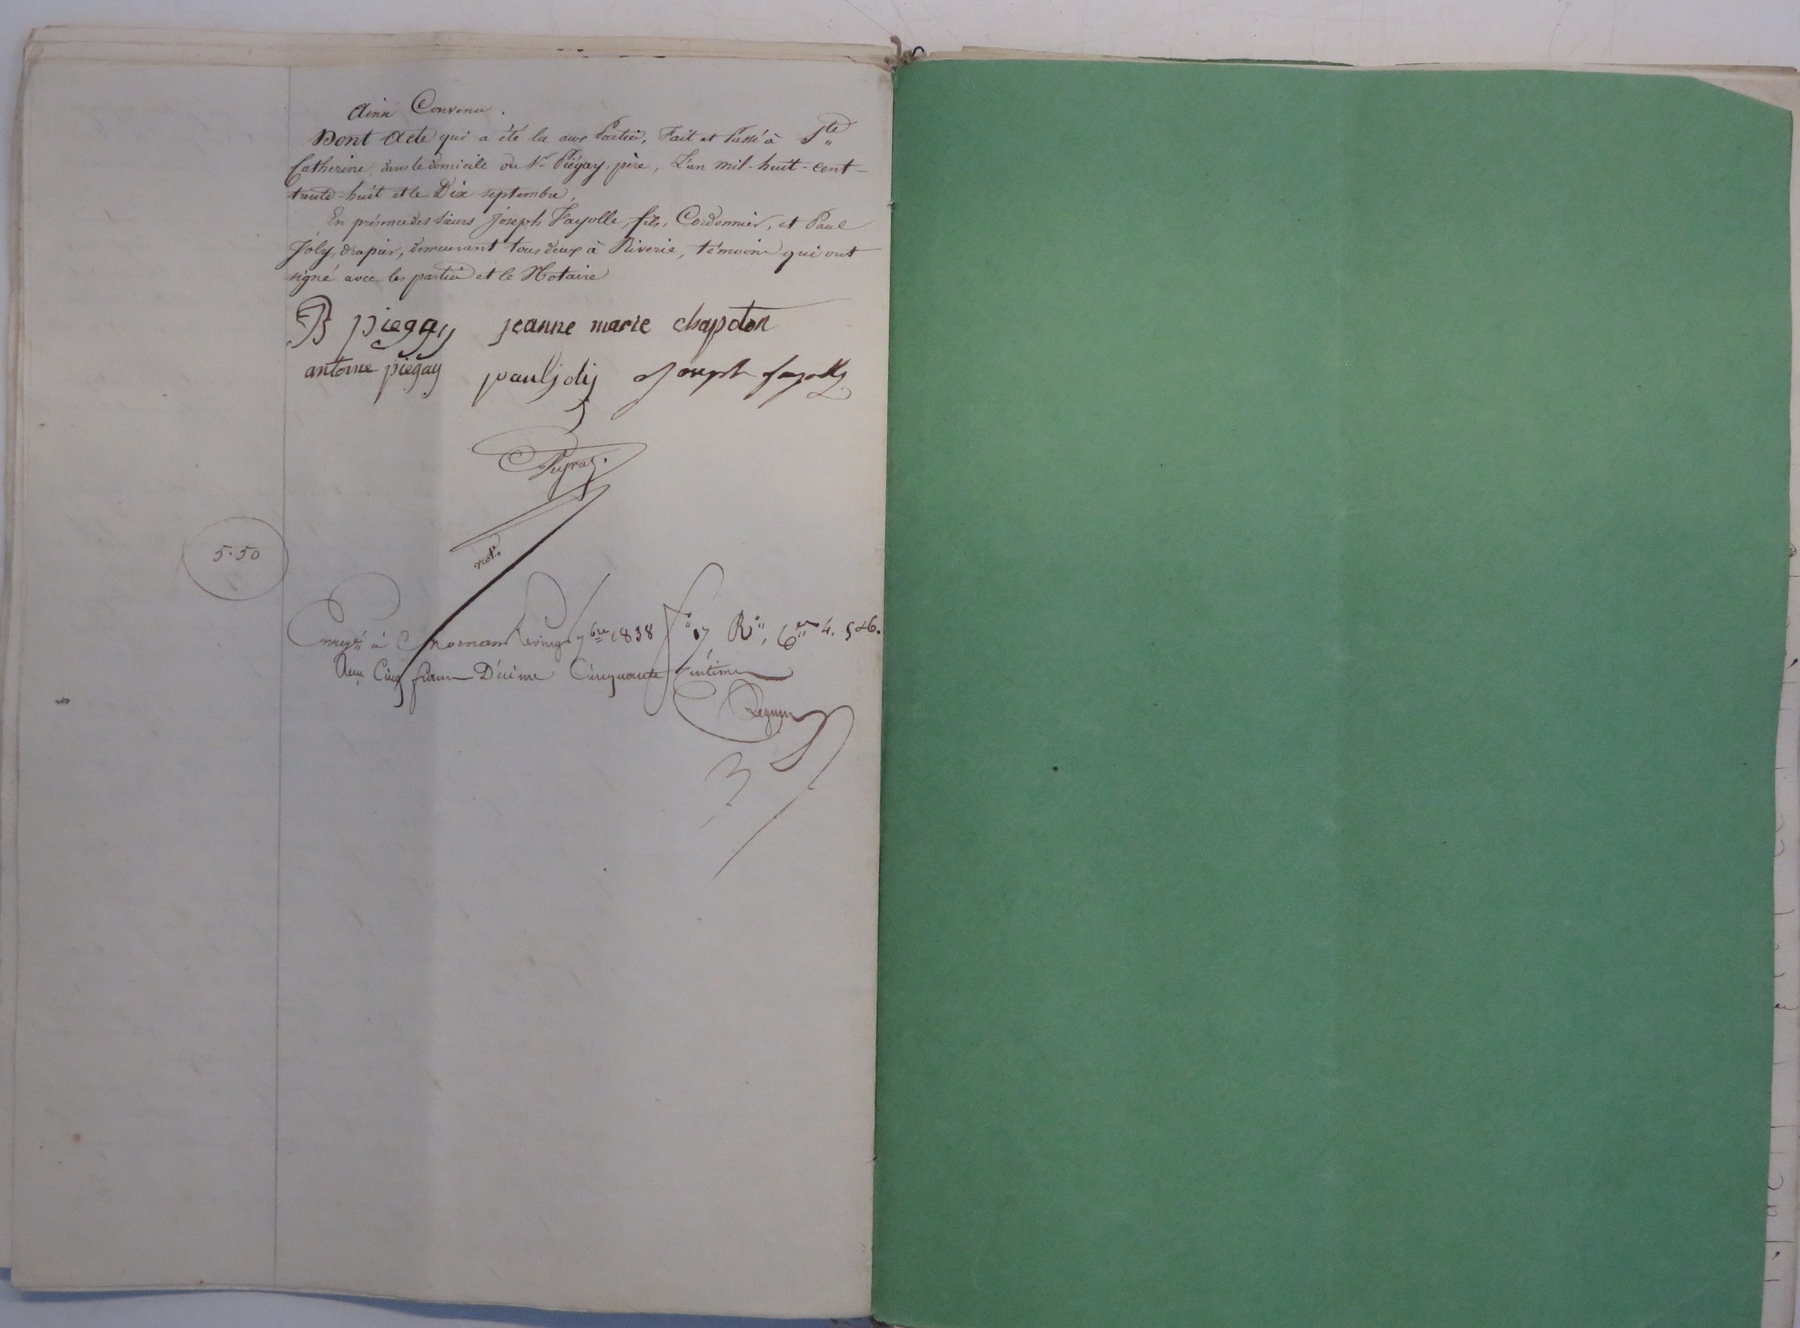 Ainsi Convenu.
Dont Acte qui a été lu aux Parties, Fait et Passé à Ste
Catherine, dans le domicile du Sr Piégay, père, L'an mil-huit-cent-
trente-huit et le Dix septembre,
En présence des sieurs Joseph Fayolle, fils, Cordonnier, et Paul
Joly, drapier, demeurant tous deux à Riverie, témoins qui ont
signé avec les parties et le Notaire
B piegay jeanne marie chapoton
antoine piegay paul joly Joseph fayolle
Peyraz
not.
5.50
Enregé à Mornant le vingt 7bre 1838 f° 17 R°, Cer 4. 5 et 6.
Reçu Cinq francs Décime Cinquante Centimes